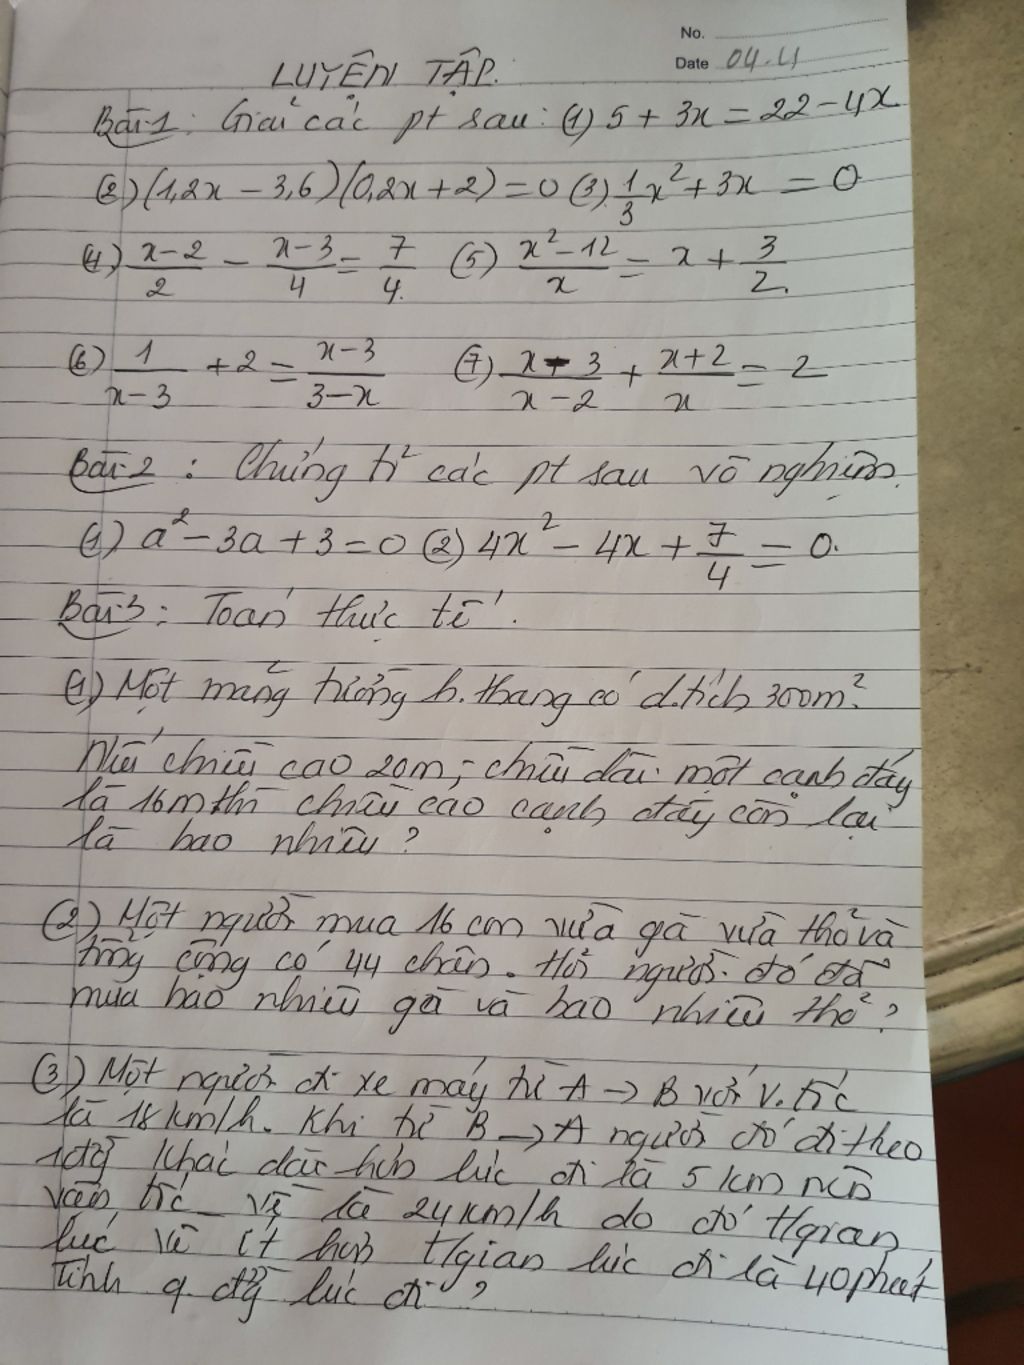 No.
Date 04.4
LUYỆN TẬP.
Bài 1: Giải các pt sau: (1) 5 + 3x = 22 - 4x
(2) (1,2x - 3,6)(0,2x + 2) = 0 (3) 1/3 x² + 3x = 0
(4) x-2/2 - x-3/4 = 7/4. (5) x²-12/x = x + 3/2.
(6) 1/x-3 + 2 = x-3/3-x (7) x+3/x-2 + x+2/x = 2
Bài 2: Chứng tỏ các pt sau vô nghiệm.
(1) a² - 3a + 3 = 0 (2) 4x² - 4x + 7/4 = 0.
Bài 3: Toán thực tế.
(1) Một mảng tường h.thang có d.tích 300m².
Nếu chiều cao 20m, chiều dài một cạnh đáy
là 16m thì chiều cao cạnh đáy còn lại
là bao nhiêu?
(2) Một người mua 16 con vừa gà vừa thỏ và
tổng cộng có 44 chân. Hỏi người đó đã
mua bao nhiêu gà và bao nhiêu thỏ?
(3) Một người đi xe máy từ A → B với v.tốc
là 18 km/h. Khi từ B → A người đó đi theo
1 đg khác dài hơn lúc đi là 5 km nên
vận tốc về là 24 km/h do đó t/gian
lúc về ít hơn t/gian lúc đi là 40 phút
Tính q. đg lúc đi?